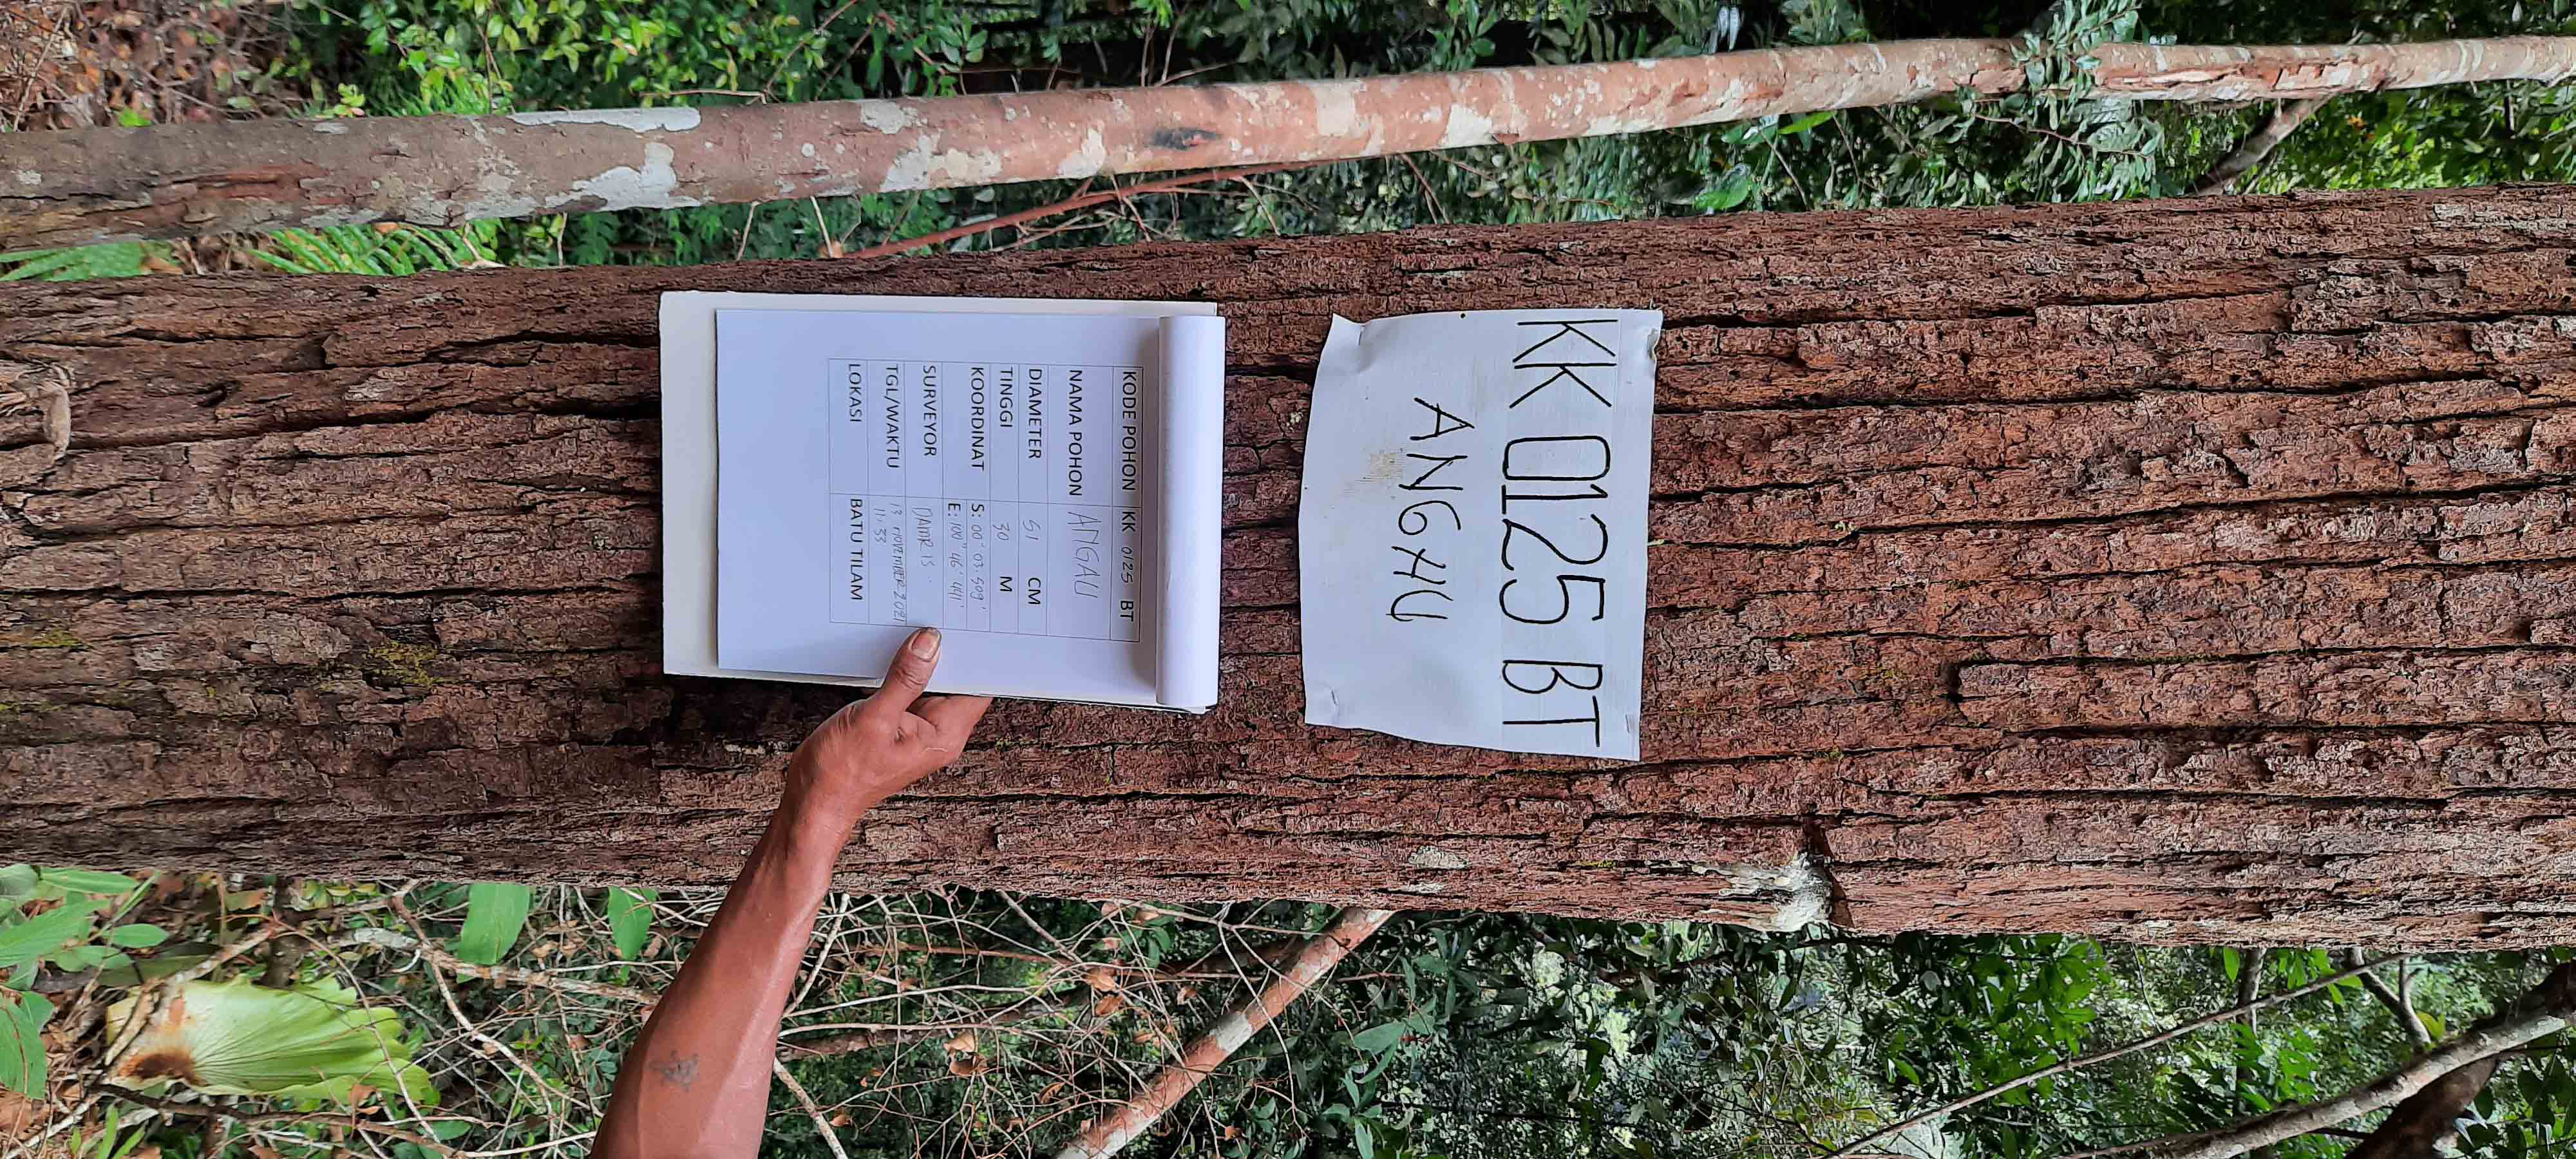 KK 0125 BT
ANGAU
KODE POHON KK 0125 BT
NAMA POHON ANGAU
DIAMETER 51 CM
TINGGI 30 M
KOORDINAT S: 00° 03. 509'
E: 100° 46' 441'
SURVEYOR DAMRIS.
TGL/WAKTU 13 NOVEMBER 2021
11:33
LOKASI BATU TILAM